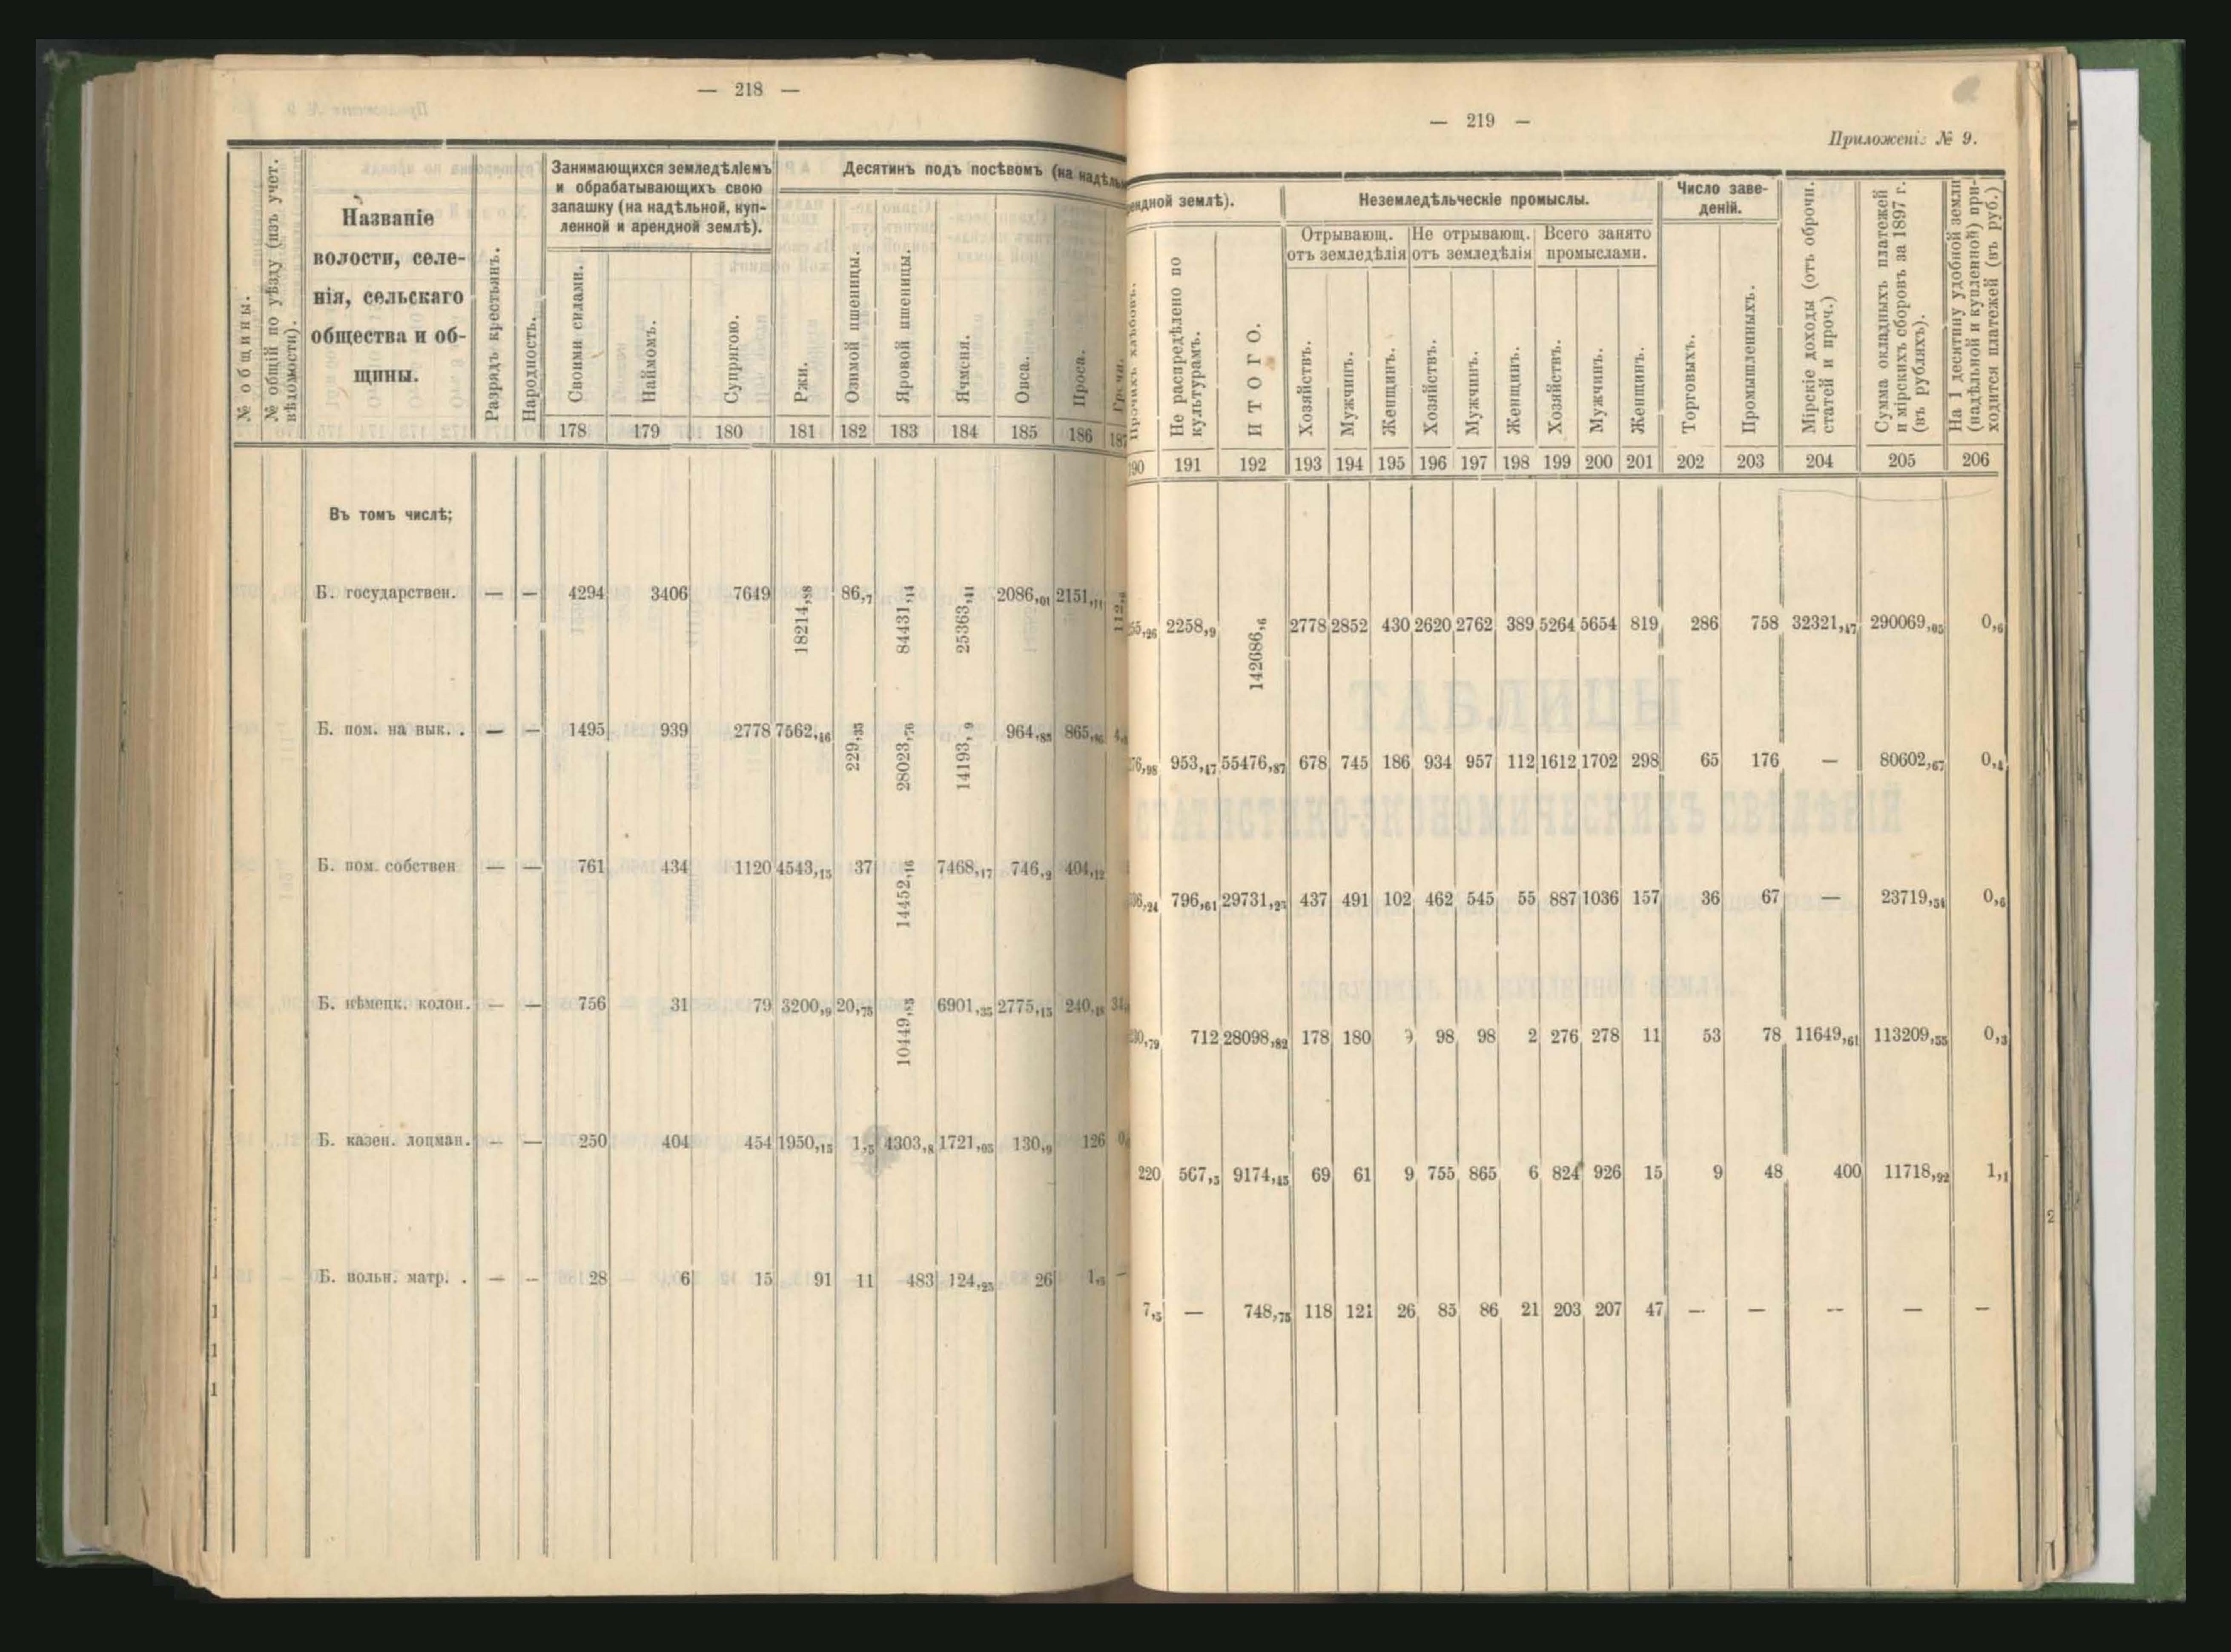 — 218 —
№ общины.
№ общій по уѣзду (изъ учет. вѣдомости).
Названіе
волости, селе-
нія, сельскаго
общества и об-
щины.
Разрядъ крестьянъ.
Народность.
Занимающихся земледѣліемъ
и обрабатывающихъ свою
запашку (на надѣльной, куп-
ленной и арендной землѣ).
Своими силами.
Наймомъ.
Супрягою.
Десятинъ подъ посѣвомъ (на надѣль
Ржи.
Озимой пшеницы.
Яровой пшеницы.
Ячменя.
Овса.
Проса.
178 179 180 181 182 183 184 185 186 187
Въ томъ числѣ;
Б. государствен. — — 4294 3406 7649 18214,88 86,7 84431,14 25363,41 2086,01 2151,11
Б. пом. на вык. . — — 1495 939 2778 7562,46 229,35 28023,76 14193,9 964,85
Б. пом. собствен — — 761 434 1120 4543,15 37 14452,16 7468,17 746,2 404,12
Б. нѣмецк. колон. — — 756 31 79 3200,9 20,75 10449,85 6901,35 2775,15
Б. казен. лоцман. — — 250 404 454 1950,15 1,5 4303,8 1721,05 130,9 126
Б. вольн. матр. . — — 28 6 15 91 11 483 124,25 26 1,5 —
— 219 —
Приложеніе № 9.
ендной землѣ).
Прочихъ хлѣбовъ.
Не распредѣлено по культурамъ.
ИТОГО.
Неземледѣльческіе промыслы.
Отрывающ.
отъ земледѣлія
Не отрывающ.
отъ земледѣлія
Всего занято
промыслами.
Хозяйствъ.
Мужчинъ.
Женщинъ.
Хозяйствъ.
Мужчинъ.
Женщинъ.
Хозяйствъ.
Мужчинъ.
Женщинъ.
Число заве-
деній.
Торговыхъ.
Промышленныхъ.
Мірскіе доходы (отъ оброчн. статей и проч.)
Сумма окладныхъ платежей и мірскихъ сборовъ за 1897 г. (въ рубляхъ).
На 1 десятину удобной земли (надѣльной и купленной) при- ходится платежей (въ руб.)
90 191 192 193 194 195 196 197 198 199 200 201 202 203 204 205 206
55,26 2258,9 142686,6 2778 2852 430 2620 2762 389 5264 5654 819 286 758 32321,47 290069,05 0,6
76,98 953,47 55476,87 678 745 186 934 957 112 1612 1702 298 65 176 — 80602,67 0,4
36,24 796,61 29731,25 437 491 102 462 545 55 887 1036 157 36 67 — 23719,54 0,6
30,79 712 28098,82 178 180 9 98 98 2 276 278 11 53 78 11649,61 113209,55 0,3
220 567,5 9174,45 69 61 9 755 865 6 824 926 15 9 48 400 11718,92 1,1
7,5 — 748,75 118 121 26 85 86 21 203 207 47 — — — — —